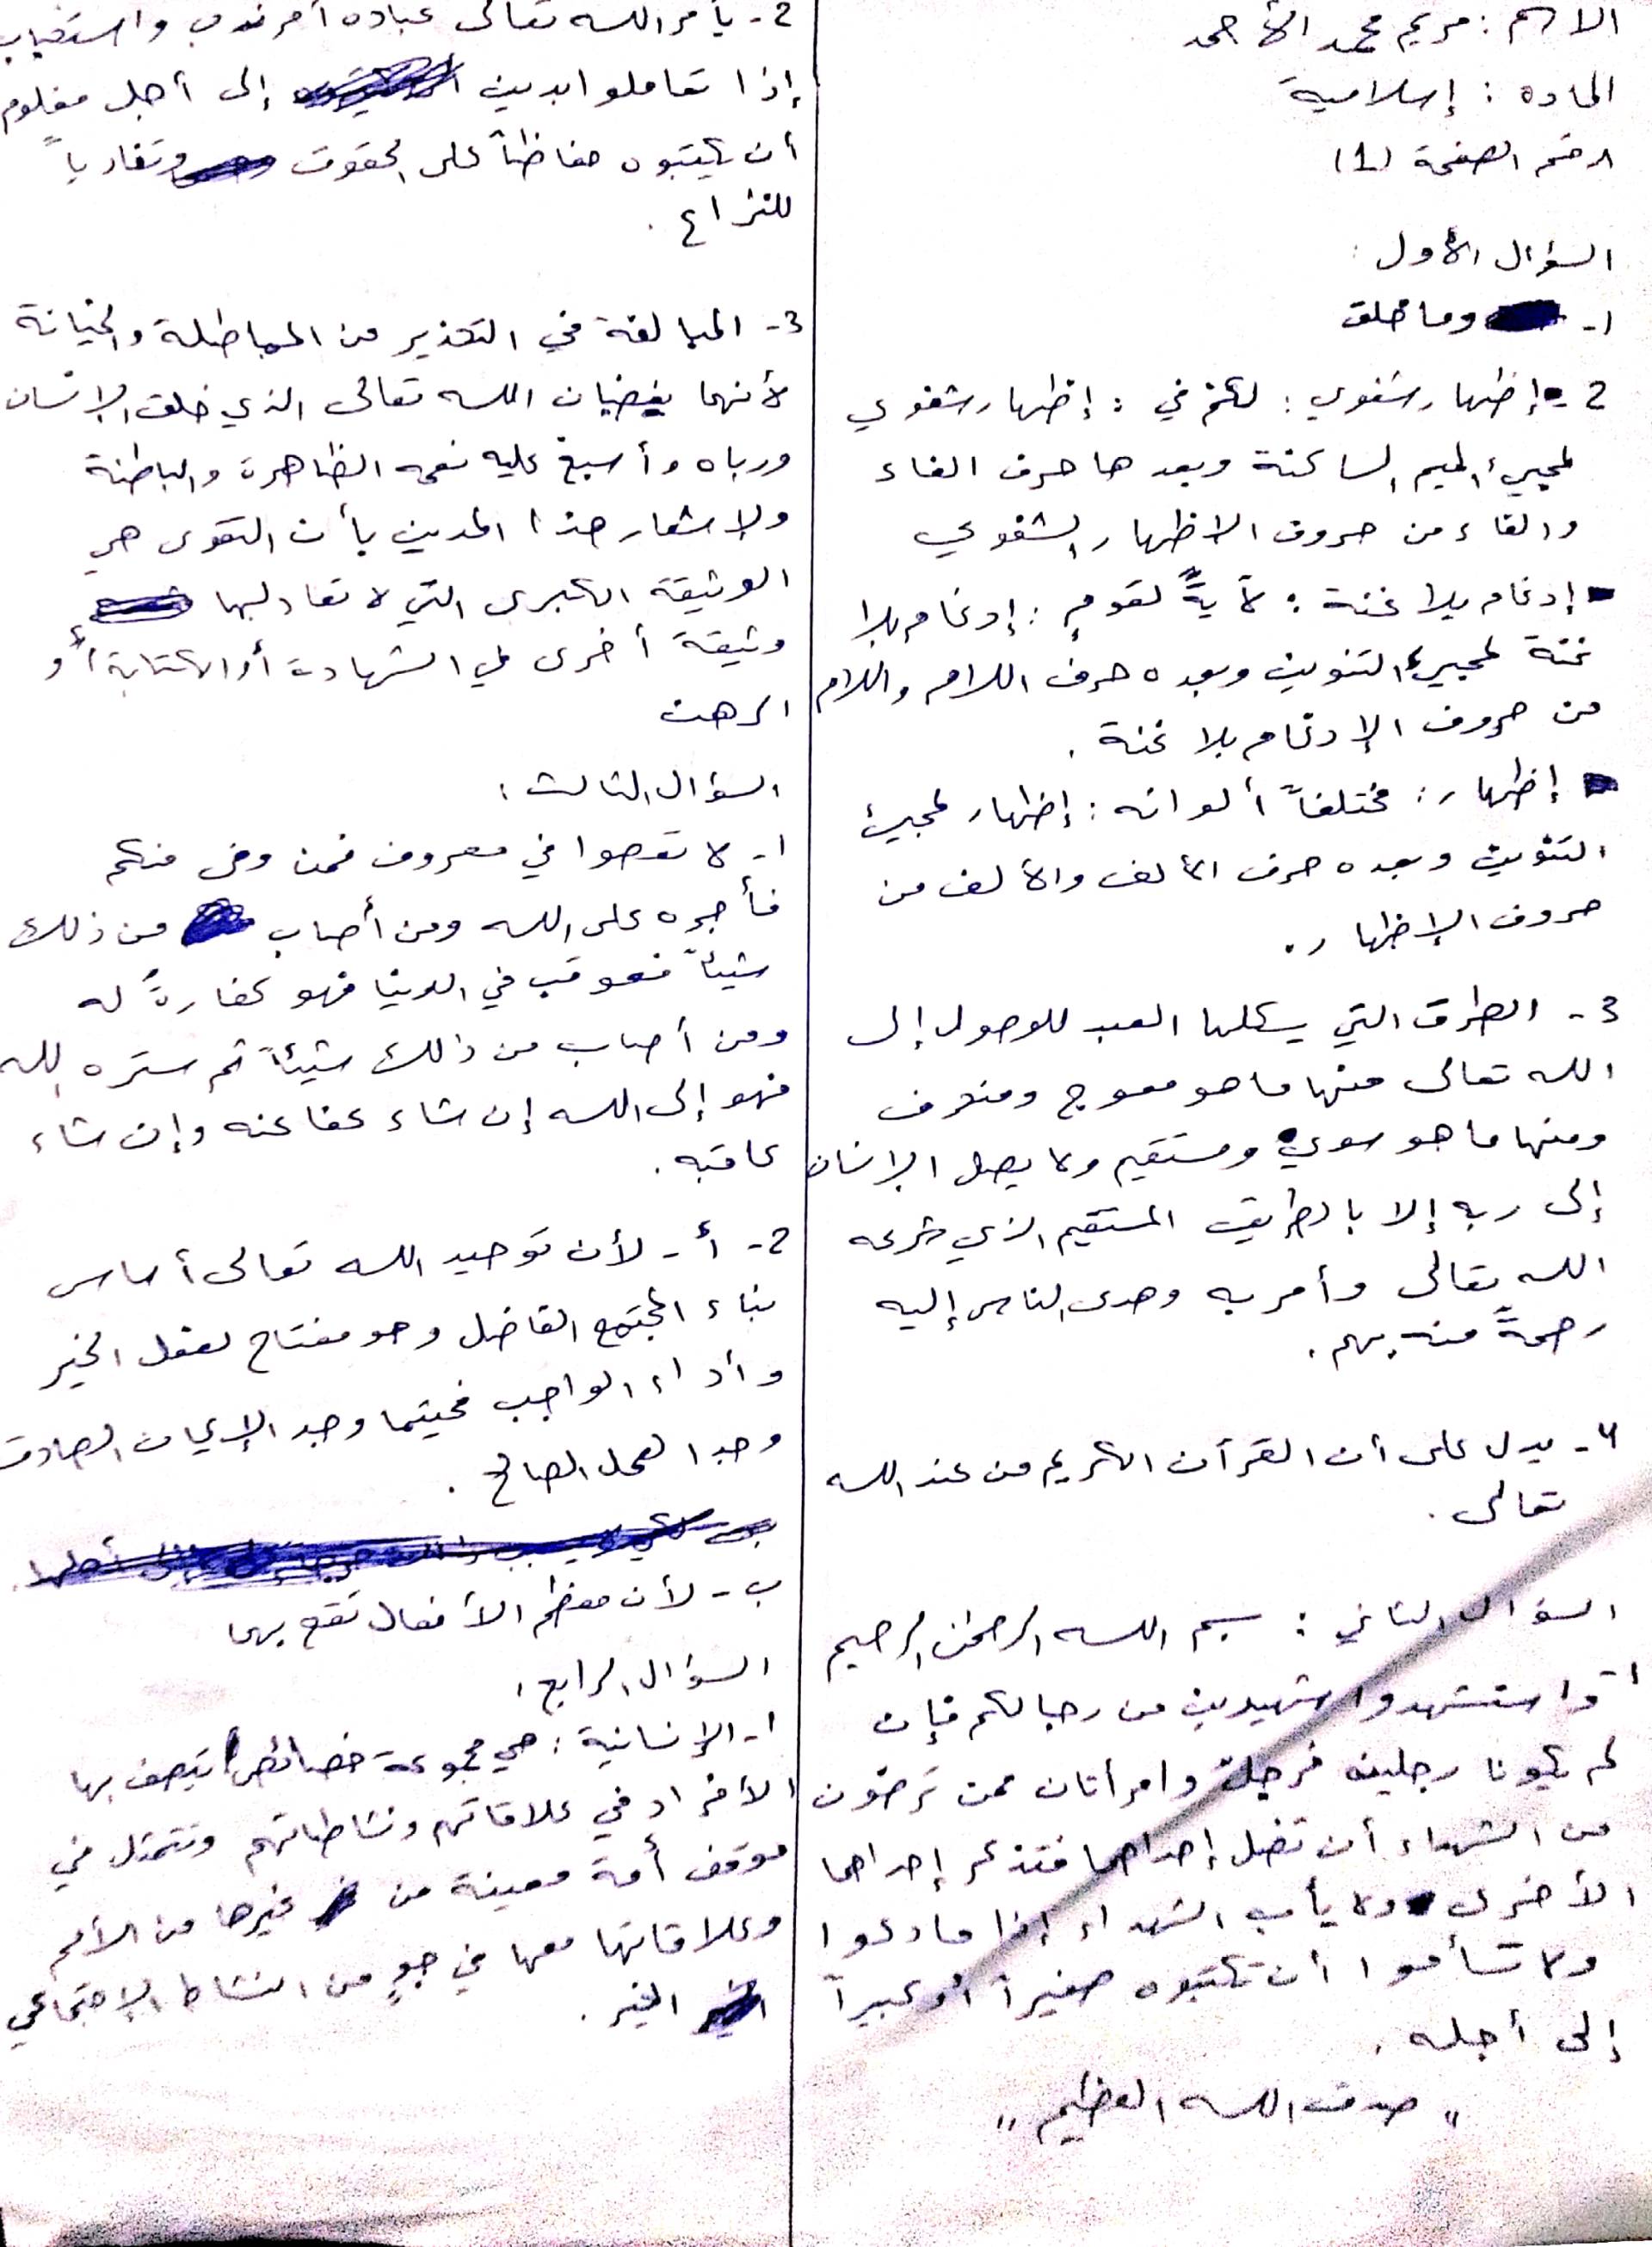 الاسم : مريم محمد الأحمد
المادة : إسلامية
رقم الصفحة (1)
السؤال الأول :
1- وما خلق
2- إظهار شفوي : لكم في : إظهار شفوي
لمجيء الميم الساكنة وبعدها حرف الفاء
والفاء من حروف الاظهار الشفوي
- إدغام بلا غنة : لآيةً لقومٍ : إدغام بلا
غنة لمجيء التنوين وبعده حرف اللام واللام
من حروف الإدغام بلا غنة .
- إظهار : مختلفاً ألوانه : إظهار لمجيئ
التنوين وبعده حرف الألف والألف من
حروف الإظهار .
3- الطرق التي يسكلها العبد للوصول إلى
الله تعالى منها ما هو معوج ومنحرف
ومنها ما هو سوي ومستقيم ولا يصل الإنسان
إلى ربه إلا بالطريق المستقيم الذي شرعه
الله تعالى وأمر به وهدى الناس إليه
رحمةً منه بهم .
4- يدل على أن القرآن الكريم من عند الله
تعالى .
السؤال الثاني : بسم الله الرحمن الرحيم
" واستشهدوا شهيدين من رجالكم فإن
لم يكونا رجلين فرجلٌ وامرأتان ممن ترضون
من الشهداء أن تضل إحداهما فتذكر إحداهما
الأخرى ولا يأب الشهداء إذا ما دعوا
ولا تسأموا أن تكتبوه صغيراً أو كبيراً
إلى أجله .
" صدق الله العظيم "
2- يأمر الله تعالى عباده أمر ندب واستحباب
إذا تعاملوا بدين إلى أجل معلوم
أن يكتبوه حفاظاً على الحقوق وتفادياً
للنزاع .
3- المبالغة في التحذير من المماطلة والخيانة
لأنهما يغضبان الله تعالى الذي خلق الإنسان
ورباه وأسبغ عليه نعمه الظاهرة والباطنة
ولاشعار هذا المدين بأن التقوى هي
الوثيقة الكبرى التي لا تعادلها
وثيقة أخرى في الشهادة أو الكتابة أو
الرهن
السؤال الثالث :
1- لا تعصوا في معروف فمن وفى منكم
فأجره على الله ومن أصاب من ذلك
شيئاً فعوقب في الدنيا فهو كفارةً له
ومن أصاب من ذلك شيئاً ثم ستره الله
فهو إلى الله إن شاء عفا عنه وإن شاء
عاقبه .
2- أ- لأن توحيد الله تعالى أساس
بناء المجتمع الفاضل وهو مفتاح لفعل الخير
وأداء الواجب فحيثما وجد الإيمان الصادق
وجد العمل الصالح .
ب- لأن معظم الأفعال تقع بهما
السؤال الرابع :
1- الإنسانية : هي مجموعة خصائص يتصف بها
الأفراد في علاقاتهم ونشاطاتهم وتتمثل في
موقف أمة معينة من غيرها من الأمم
وعلاقاتها معها في جوٍ من النشاط الإجتماعي
الخير .